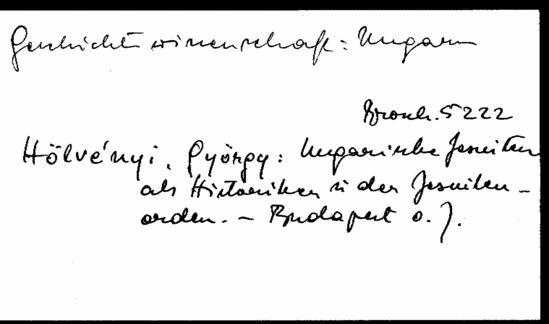 Geschichtswissenschaft: Ungarn
Brosch. 5222
Hölvényi, György: Ungarische Jesuiten
als Historiker u der Jesuiten-
orden. - Budapest o. J.